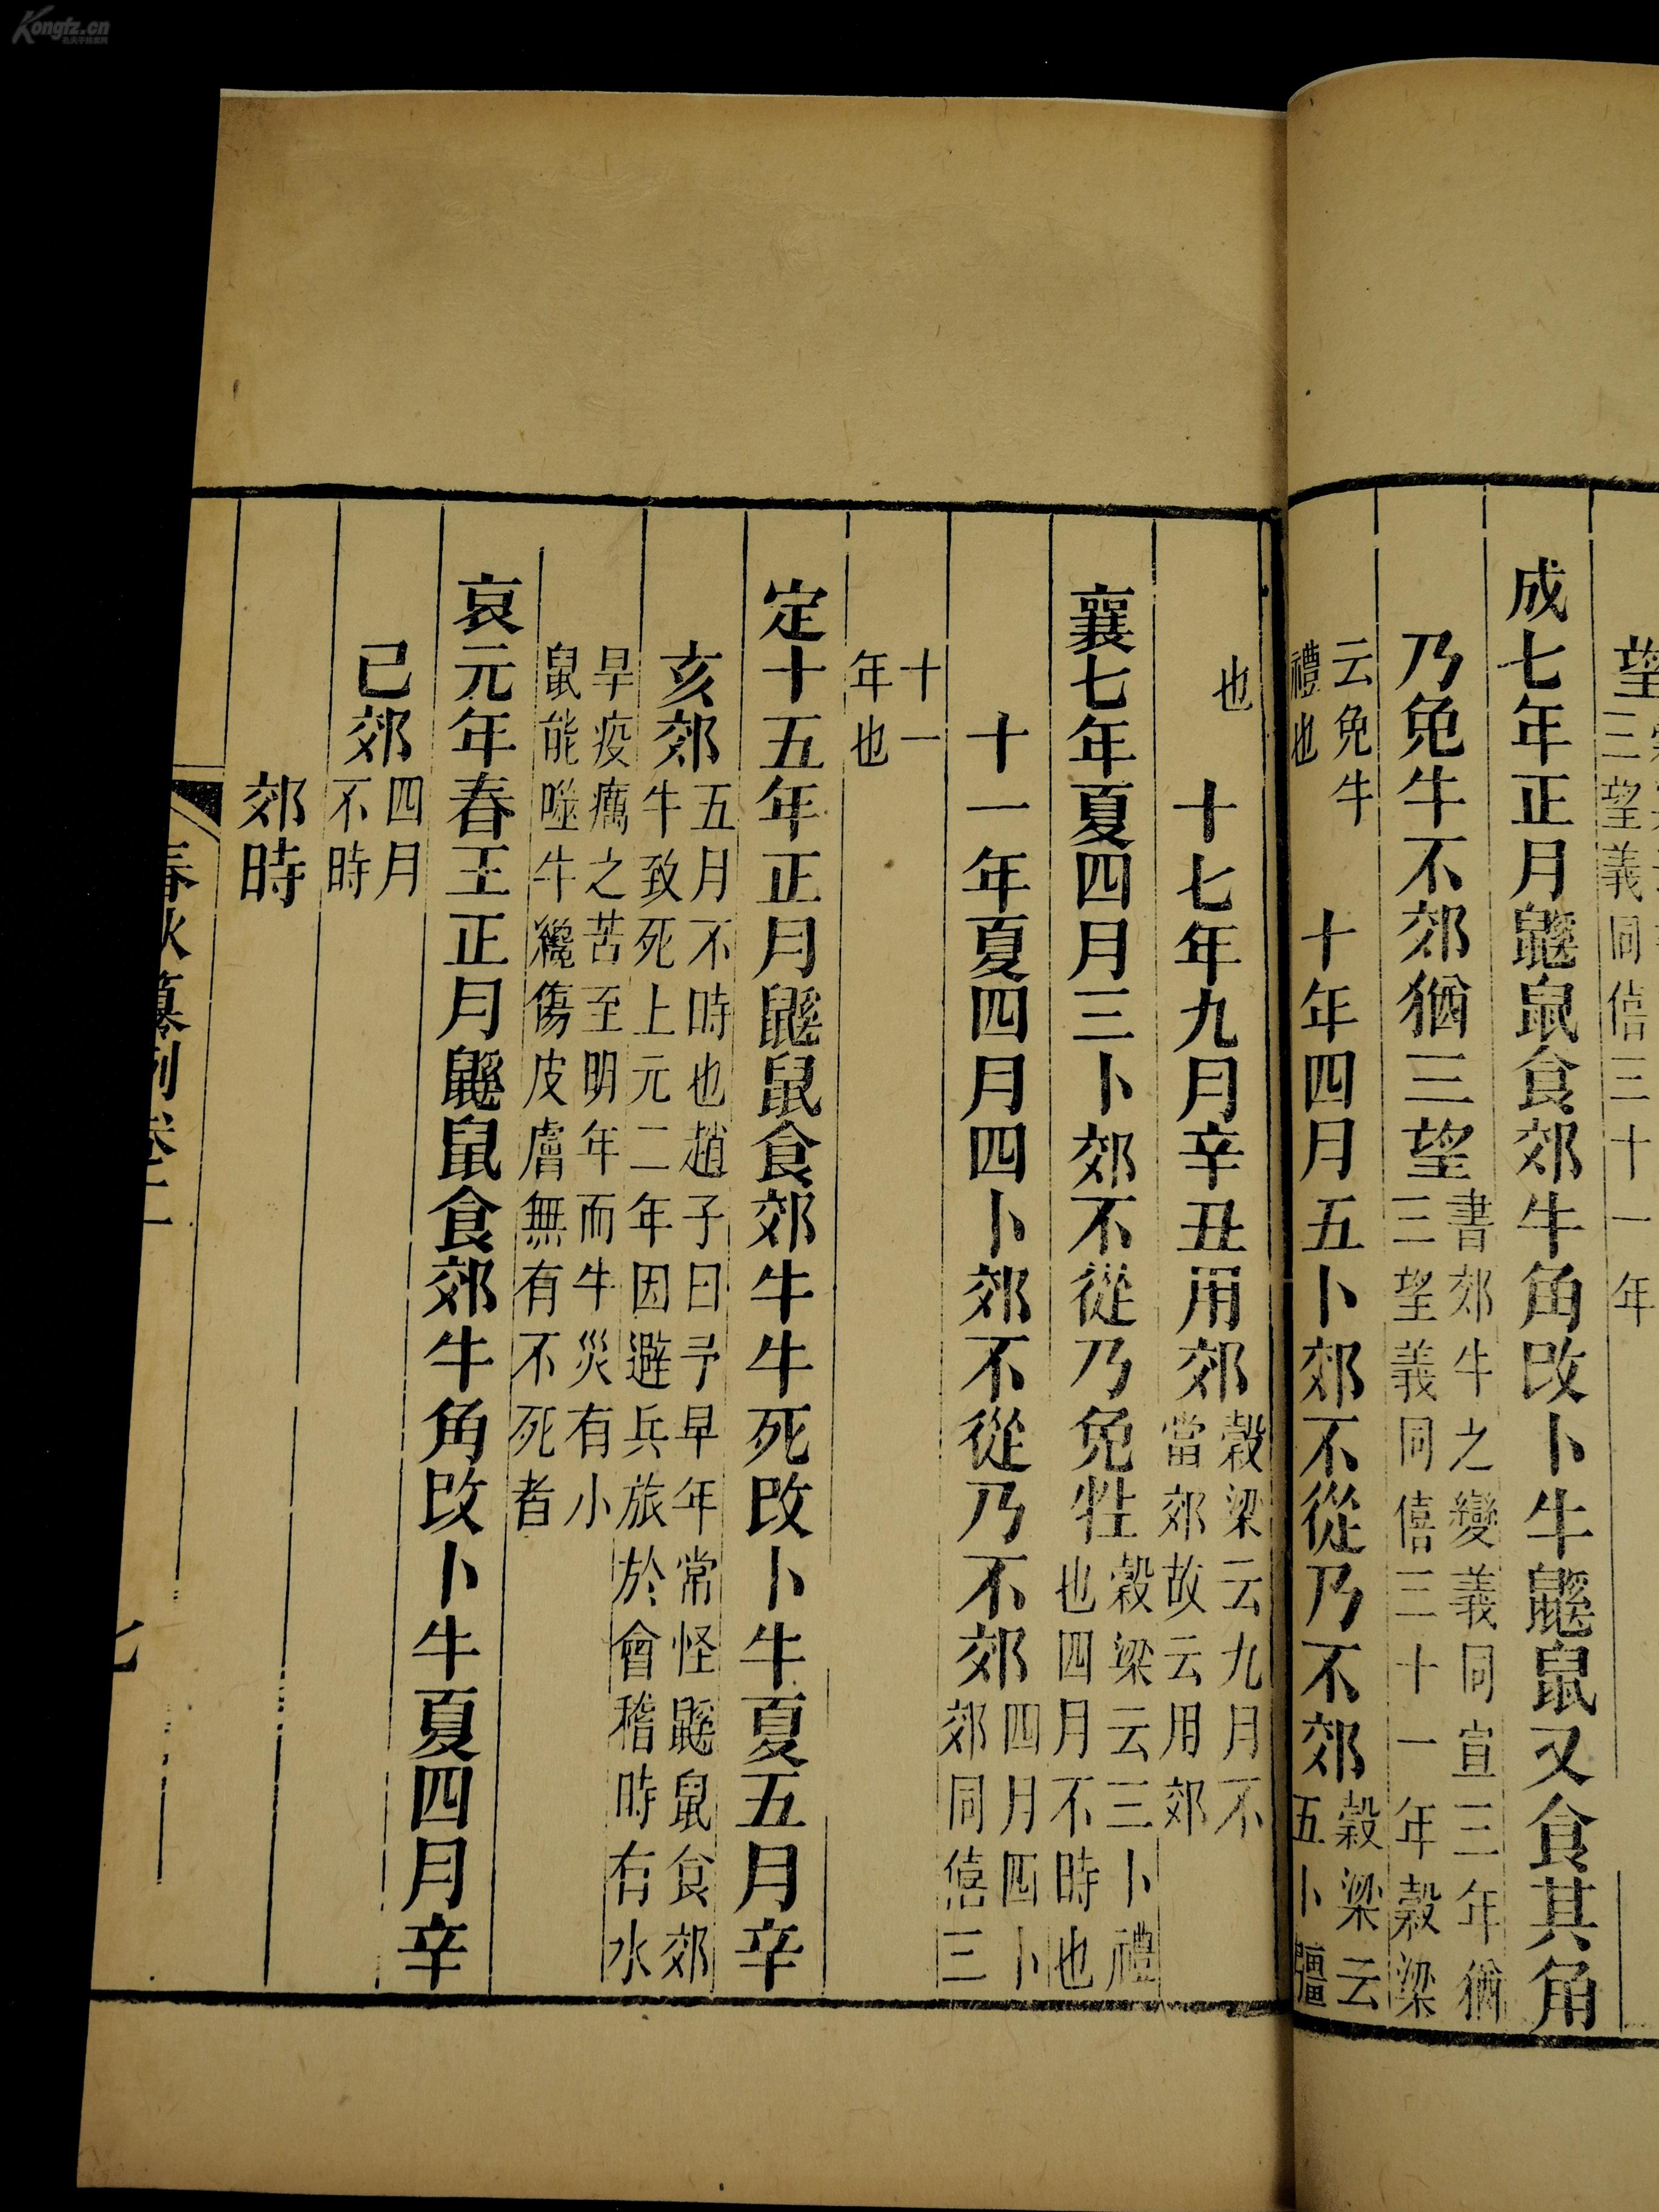 望
三望義同僖三十一年
成七年正月鼷鼠食郊牛角改卜牛鼷鼠又食其角
乃免牛不郊猶三望
書郊牛之變義同宣三年猶
三望義同僖三十一年穀梁
云免牛
禮也
十年四月五卜郊不從乃不郊
穀梁云
五卜彊
也
十七年九月辛丑用郊
穀梁云九月不
當郊故云用郊
襄七年夏四月三卜郊不從乃免牲
穀梁云三卜禮
也四月不時也
十一年夏四月四卜郊不從乃不郊
四月四卜
郊同僖三
十一
年也
定十五年正月鼷鼠食郊牛牛死改卜牛夏五月辛
亥郊
五月不時也趙子曰予早年常怪鼷鼠食郊
牛致死上元二年因避兵旅於會稽時有水
旱疫癘之苦至明年而牛災有小
鼠能噬牛纔傷皮膚無有不死者
哀元年春王正月鼷鼠食郊牛角改卜牛夏四月辛
巳郊
四月
不時
郊時
春秋纂例卷二
七
Kongfz.cn